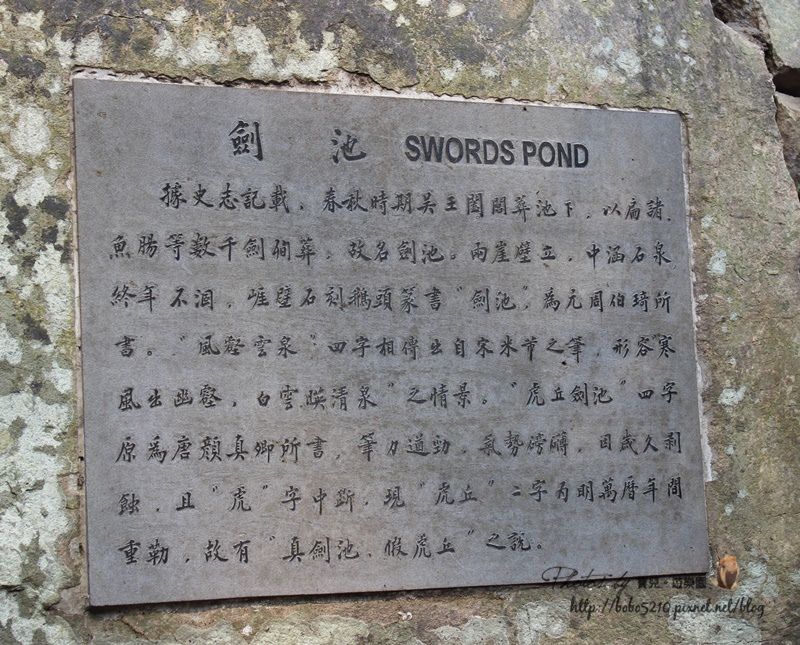 劍 池 SWORDS POND
據史志記載，春秋時期吴王闔閭葬池下，以扁諸、
魚腸等数千劍殉葬，故名劍池。兩崖壁立，中涵石泉，
終年不涸，崕壁石刻鵝頭篆書“劍池”，為元周伯琦所
書。“風壑雲泉”四字相傳出自宋米芾之筆，形容寒
風出幽壑，白雲映清泉”之情景。“虎丘劍池”四字
原為唐顏真卿所書，筆力遒勁，氣勢磅礴，因歲久剥
蝕，且“虎”字中斷，現“虎丘”二字為明萬曆年間
重勒，故有“真劍池、假虎丘”之説。
Photo by 寶兒。遊樂園
http://bobo5210.pixnet.net/blog